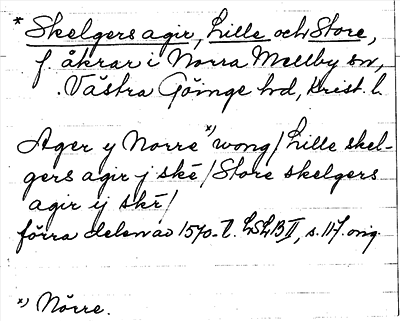 * Skelgers agir, Lille och Store,
f. åkrar i Norra Mellby sn,
Västra Göinge hd, Krist. l.
Ager y Norre *) wong / Lille skel-
gers agir j skē / Store skelgers
agir ij skē /
förra delen av 1570-t. LSLB II, s. 117. orig.
*) Nörre.